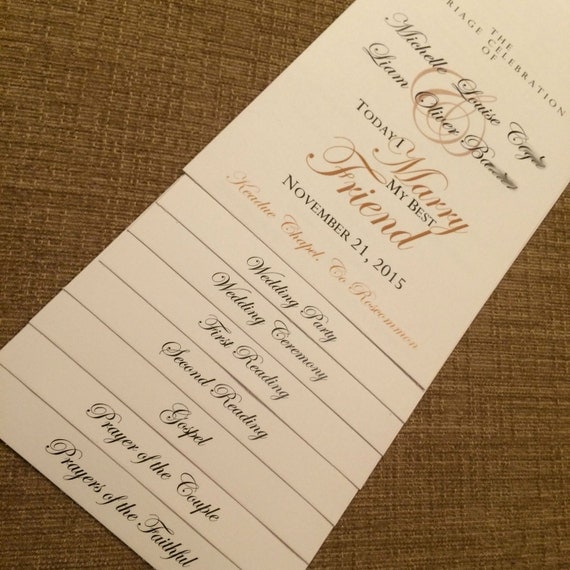 THE
CELEBRATION
OF
Michelle Louise
&
Liam Oliver
TODAY I
Marry
MY BEST
Friend
NOVEMBER 21, 2015
Keadue Chapel, Co Roscommon
Wedding Party
Wedding Ceremony
First Reading
Second Reading
Gospel
Prayer of the Couple
Prayers of the Faithful